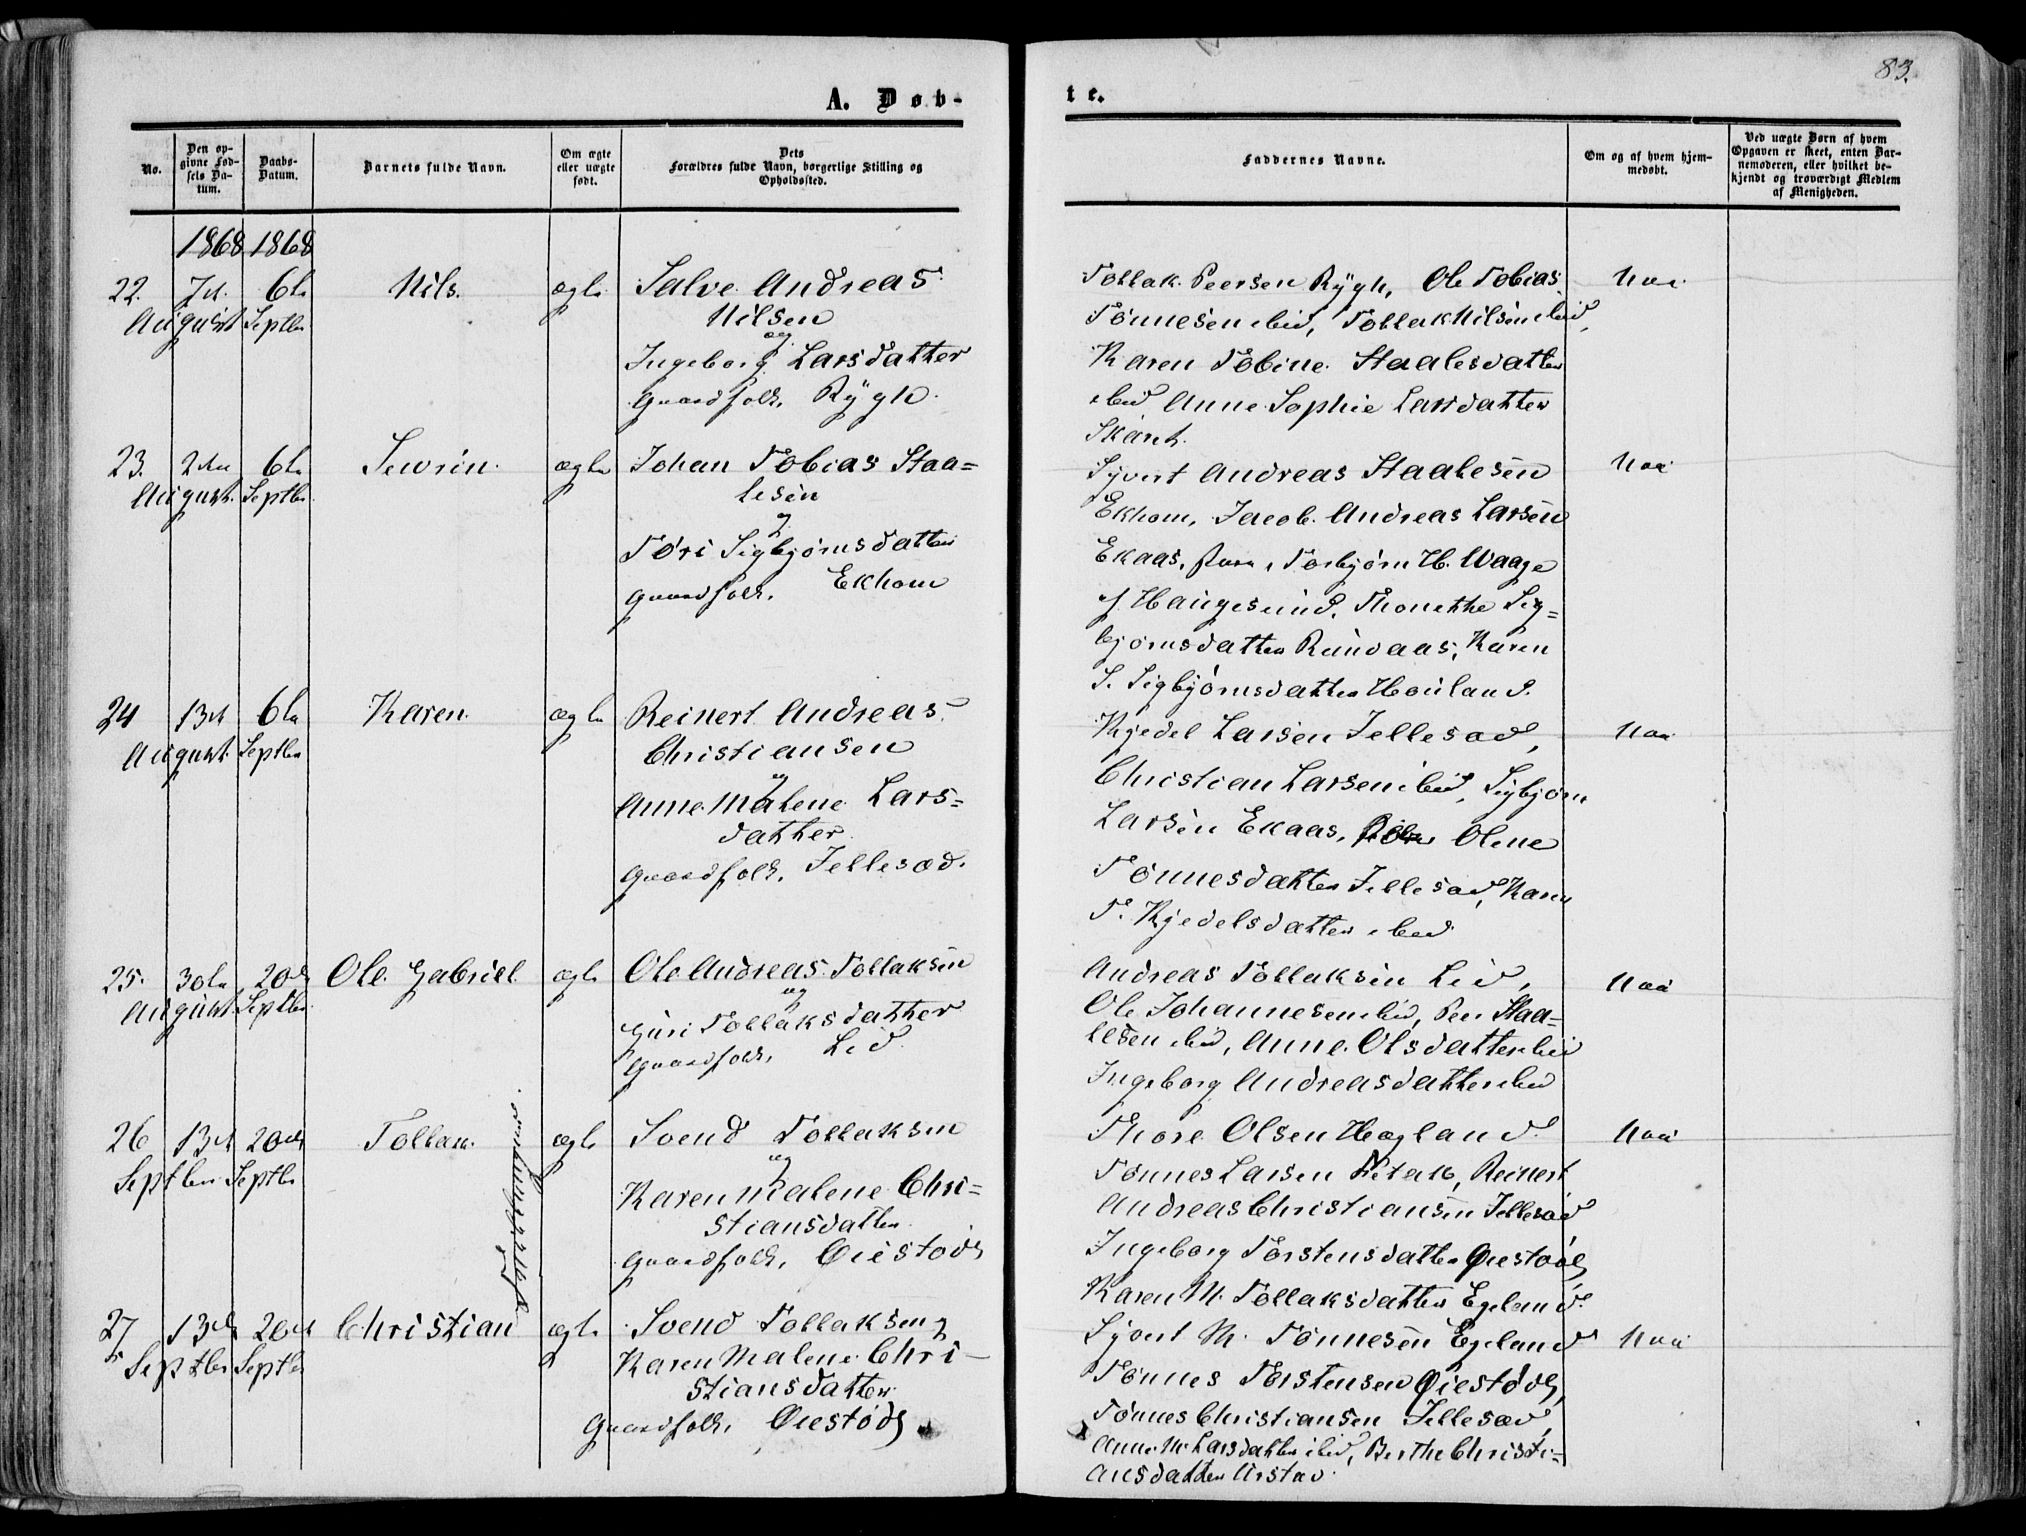 83.
A. Døb-
te.
No.
Den op-
givne Fød-
sels Da-
tum.
Daabs-
Datum.
Barnets fulde Navn.
Om ægte
eller uægte
født.
Dets
Forældres fulde Navn, borgerlige Stilling og
Opholdssted.
Faddernes Navne.
Om og af hvem hjem-
medøbt.
Ved uægte Børn af hvem
Opgaven er skeet, enten Bar-
nemoderen, eller hvilket be-
kjendt og troværdigt Medlem
af Menigheden.
1868 1868
22.
August
6te
Septbr
Nils.
ægte
Salve Andreas
Nilsen
og
Ingeborg Larsdatter
Gaardfolk, Rygh.
Tollak Peersen Rygh, Ole Tobias
Tønnesen ibid, Tollak Nilsen ibid,
Karen Tobine Staalesdatter
ibid Anne Sophie Larsdatter
23.
2den
August
6te
Septbr
Sevrin.
ægte
Johan Tobias Staa=
lesen
og
Tøri Sigbjørnsdatter
Gaardfolk, Ekhom
Syvert Andreas Staalesen
Ekhom, Jacob Andreas Larsen
Ekaas, Torbjørn H. Waage
af Haugesund, Thonethe Sig=
bjørnsdatter Rundaas, Karen
S. Sigbjørnsdatter Houland.
24
13de
August.
6te
Septbr
Karen
ægte
Reinert Andreas
Christiansen
og
Anne Malene Lars=
datter
Gaardfolk, Jellesad.
Kjedel Larsen Jellesad,
Christian Larsen ibid, Sigbjørn
Larsen Ekaas, Olene
Tønnesdatter Jellesad, Karen
T. Kjedelsdatter ibid
25.
30te
August
20de
Septbr.
Ole Gabriel
ægte
Ole Andreas Tollaksen
og
Guri Tollaksdatter
Gaardfolk, Lid
Andreas Tollaksen Lid,
Ole Johannesen ibid, Peer Staa=
lesen ibid, Anne Olsdatter ibid
Ingeborg Andreasdatter ibid
26
13de
Septber
20de
Septbr
Tollak.
ægte
Svend Tollaksen
og
Karen Malene Chri=
stiansdatter
Gaardfolk, Øiestøds
Thore Olsen Hægland
Tønnes Larsen Fitak, Reinert
Andreas Christiansen Jellesad
Ingeborg Torstensdatter Øiestøds
Karen M. Tollaksdatter Egeland.
27
13de
Septbr
20de
Septbr
Christian
ægte
Svend Tollaksen
Karen Malene Chri-
stiansdatter
Gaardfolk, Øiestøds
Syvert M. Tønnesen Egeland
Tønnes Torstensen Øiestøds,
Tønnes Christiansen Jellesad
Anne M. Larsdatter ibid, Berthe Christi=
ansdatter Arstad.